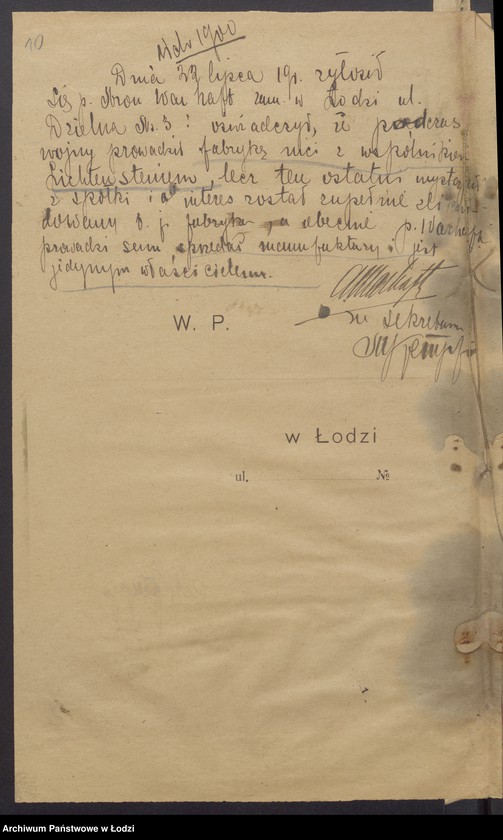 10
1900
Dnia 22 lipca 19 r. zgłosił
się p. Aron Warhaft zam. w Łodzi ul.
Dzielna № 3 i oświadczył, że podczas
wojny prowadził fabrykę nici z wspólnikiem
Lichtensteinem, lecz ten ostatni wystąpił
z spółki i interes został zupełnie zlikwi-
dowany t. j. fabryka, a obecnie p. Warhaft
prowadzi sam sprzedaż manufaktury i jest
jedynym właścicielem.
AWarhaft
za sekretarza
W. P.
w Łodzi
ul. №
Archiwum Państwowe w Łodzi